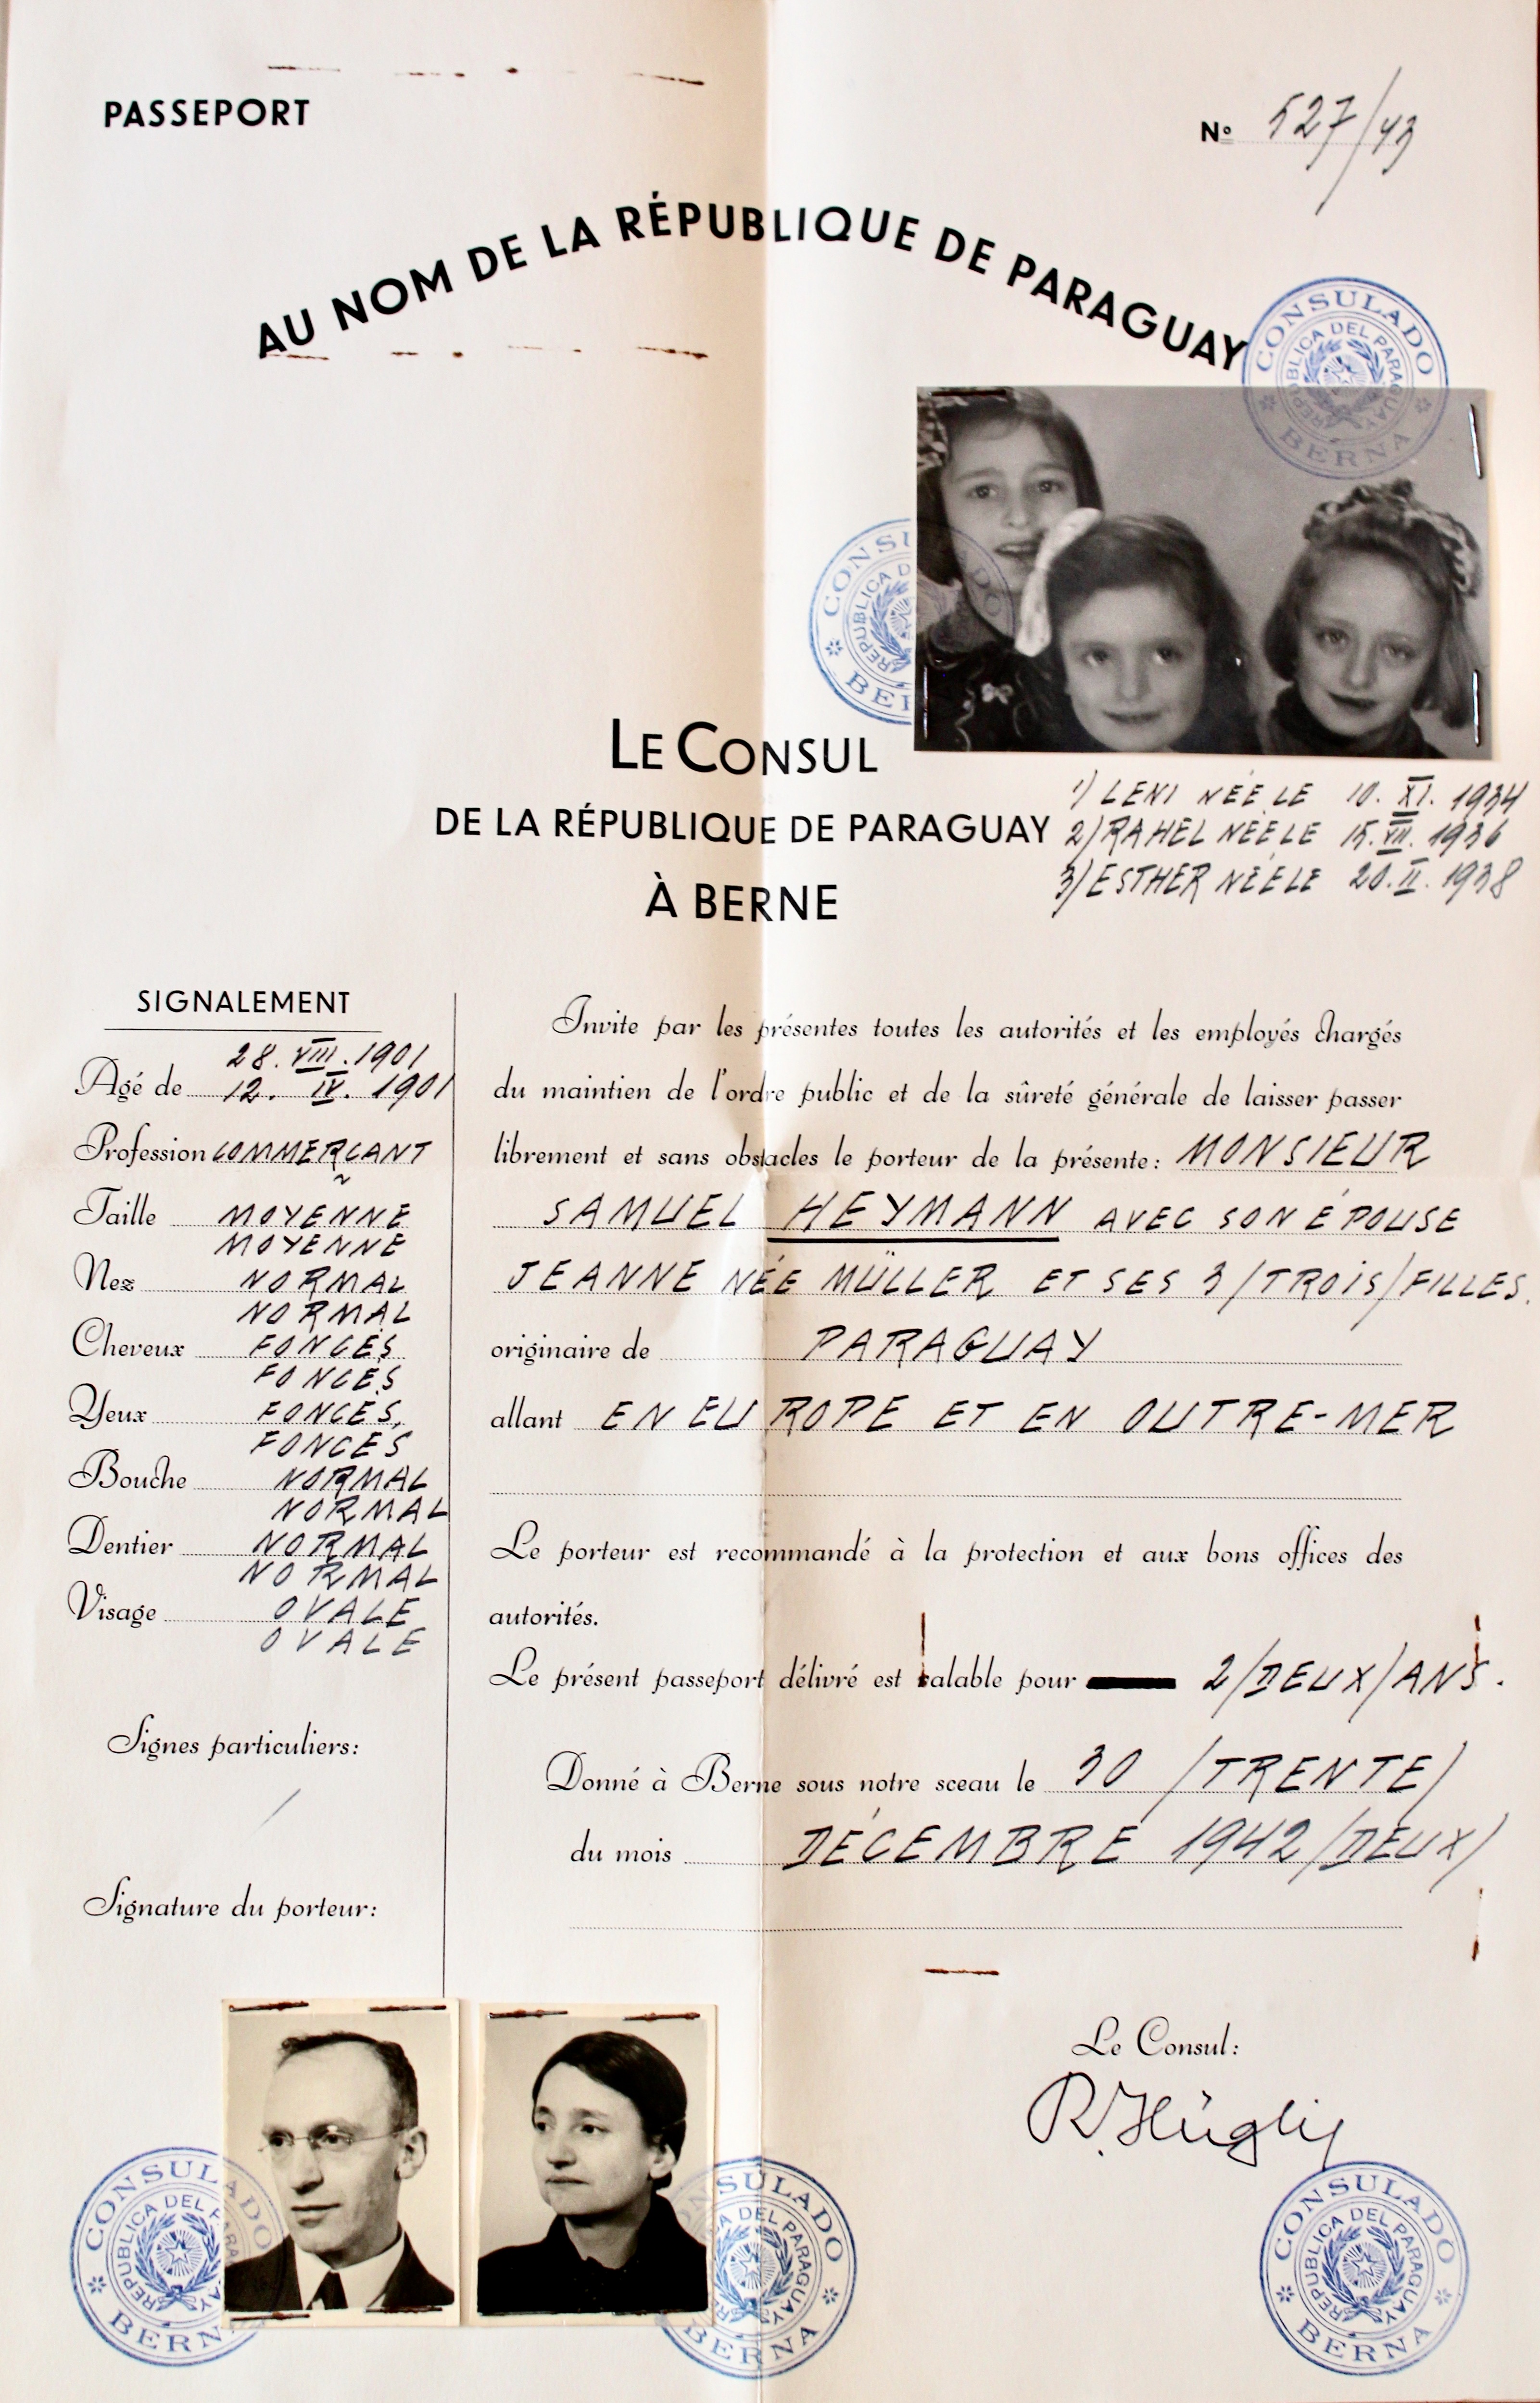 PASSEPORT
Nº 527/43
AU NOM DE LA RÉPUBLIQUE DE PARAGUAY
CONSULADO
REPUBLICA DEL PARAGUAY
BERNA
CONSULADO
REPUBLICA D
BER
LE CONSUL
DE LA RÉPUBLIQUE DE PARAGUAY
À BERNE
1) LENI NÉE LE 10. XI. 1934
2) RAHEL NÉE LE 15. VII. 1936
3) ESTHER NÉE LE 20. II. 1938
SIGNALEMENT
28. VIII. 1901
Agé de 12. IV. 1901
Profession COMMERÇANT
Taille MOYENNE
MOYENNE
Nez NORMAL
NORMAL
Cheveux FONCÉS
FONCÉS
Yeux FONCÉS,
FONCÉS
Bouche NORMAL
NORMAL
Dentier NORMAL
NORMAL
Visage OVALE
OVALE
Signes particuliers:
/
Signature du porteur:
Invite par les présentes toutes les autorités et les employés chargés
du maintien de l'ordre public et de la sûreté générale de laisser passer
librement et sans obstacles le porteur de la présente: MONSIEUR
SAMUEL HEYMANN AVEC SON ÉPOUSE
JEANNE NÉE MÜLLER ET SES 3/TROIS/FILLES.
originaire de PARAGUAY
allant EN EUROPE ET EN OUTRE-MER
Le porteur est recommandé à la protection et aux bons offices des
autorités.
Le présent passeport délivré est valable pour 2/DEUX/ANS.
Donné à Berne sous notre sceau le 30 /TRENTE/
du mois DÉCEMBRE 1942/DEUX/
Le Consul:
R. Hügli
CONSULADO
REPUBLICA DEL PARAGUAY
BERNA
CONSULADO
DEL PARAGUAY
BERNA
CONSULADO
REPUBLICA DEL PARAGUAY
BERNA